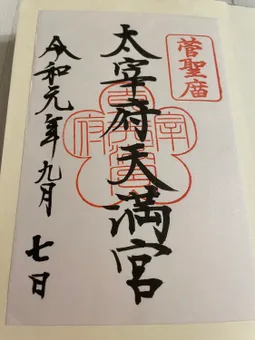 菅聖庿
太宰府天満宮
令和元年九月
七日